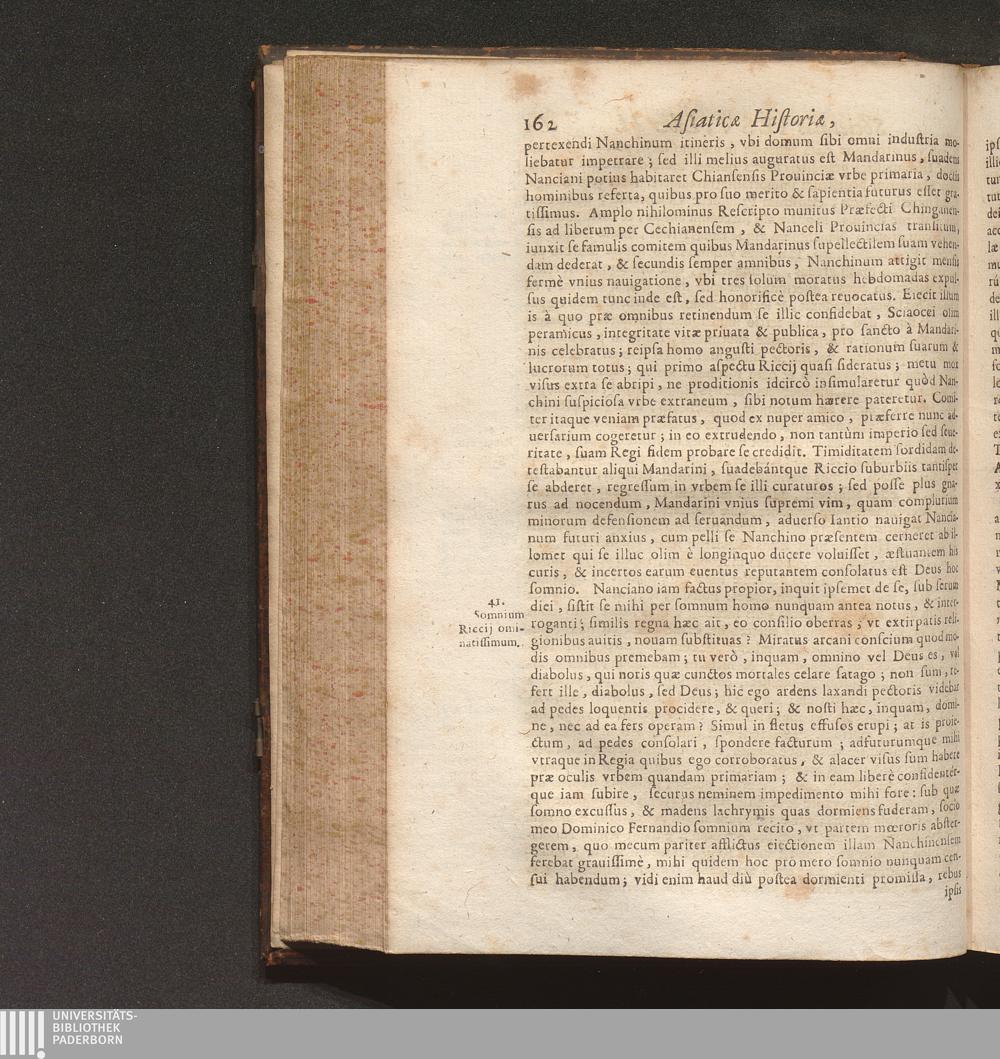 162 Aſiaticæ Hiſtoriæ,
pertexendi Nanchinum itineris, vbi domum ſibi omni induſtria mo-
liebatur impetrare; ſed illi melius auguratus eſt Mandarinus, ſuadens
Nanciani potius habitaret Chianſenſis Prouinciæ vrbe primaria, doctis
hominibus referta, quibus pro ſuo merito & ſapientia futurus eſſet gra-
tiſſimus. Amplo nihilominus Reſcripto munitus Præfecti Chinganen-
ſis ad liberum per Cechianenſem, & Nanceli Prouincias tranſitum,
iunxit ſe famulis comitem quibus Mandarinus ſupellectilem ſuam vehen-
dam dederat, & ſecundis ſemper amnibus, Nanchinum attigit menſis
fermè vnius nauigatione, vbi tres ſolum moratus hebdomadas expul-
ſus quidem tunc inde eſt, ſed honorificè poſtea reuocatus. Eiecit illum
is à quo præ omnibus retinendum ſe illic confidebat, Sciaocei olim
peramicus, integritate vitæ priuata & publica, pro ſancto à Mandari-
nis celebratus; reipſa homo anguſti pectoris, & rationum ſuarum &
lucrorum totus; qui primo aſpectu Riccij quaſi ſideratus; metu mox
viſus extra ſe abripi, ne proditionis idcircò inſimularetur quòd Nan-
chini ſuſpicioſa vrbe extraneum, ſibi notum hærere pateretur. Comi-
ter itaque veniam præfatus, quod ex nuper amico, præferre nunc ad-
uerſarium cogeretur; in eo extrudendo, non tantùm imperio ſed ſeue-
ritate, ſuam Regi fidem probare ſe credidit. Timiditatem ſordidam de-
teſtabantur aliqui Mandarini, ſuadebántque Riccio ſuburbiis tantiſper
ſe abderet, regreſſum in vrbem ſe illi curaturos; ſed poſſe plus gna-
rus ad nocendum, Mandarini vnius ſupremi vim, quam complurium
minorum defenſionem ad ſeruandum, aduerſo Iantio nauigat Nancia-
num futuri anxius, cum pelli ſe Nanchino præſentem cerneret ab il-
lomet qui ſe illuc olim è longinquo ducere voluiſſet, æſtuantem his
curis, & incertos earum euentus reputantem conſolatus eſt Deus hoc
ſomnio. Nanciano iam factus propior, inquit ipſemet de ſe, ſub ſerum
diei, ſiſtit ſe mihi per ſomnum homo nunquam antea notus, & inter-
roganti; ſimilis regna hæc ait, eo conſilio oberras, vt extirpatis reli-
gionibus auitis, nouam ſubſtituas? Miratus arcani conſcium quod mo-
dis omnibus premebam; tu verò, inquam, omnino vel Deus es, vel
diabolus, qui noris quæ cunctos mortales celare ſatago; non ſum, re-
fert ille, diabolus, ſed Deus; hic ego ardens laxandi pectoris videbar
ad pedes loquentis procidere, & queri; & noſti hæc, inquam, domi-
ne, nec ad ea fers operam? Simul in fletus effuſos erupi; at is proie-
ctum, ad pedes conſolari, ſpondere facturum; adfuturumque mihi
vtraque in Regia quibus ego corroboratus, & alacer viſus ſum habere
præ oculis vrbem quandam primariam; & in eam liberè confidentér-
que iam ſubire, ſecurus neminem impedimento mihi fore: ſub quæ
ſomno excuſſus, & madens lachrymis quas dormiens fuderam, ſocio
meo Dominico Fernandio ſomnium recito, vt partem mœroris abſter-
gerem, quo mecum pariter afflictus eiectionem illam Nanchinenſem
ferebat grauiſſimè, mihi quidem hoc pro mero ſomnio nunquam cen-
ſui habendum; vidi enim haud diù poſtea dormienti promiſſa, rebus
ipſis
41.
Somnium
Riccij omi-
natiſſimum.
UNIVERSITÄTS-
BIBLIOTHEK
PADERBORN